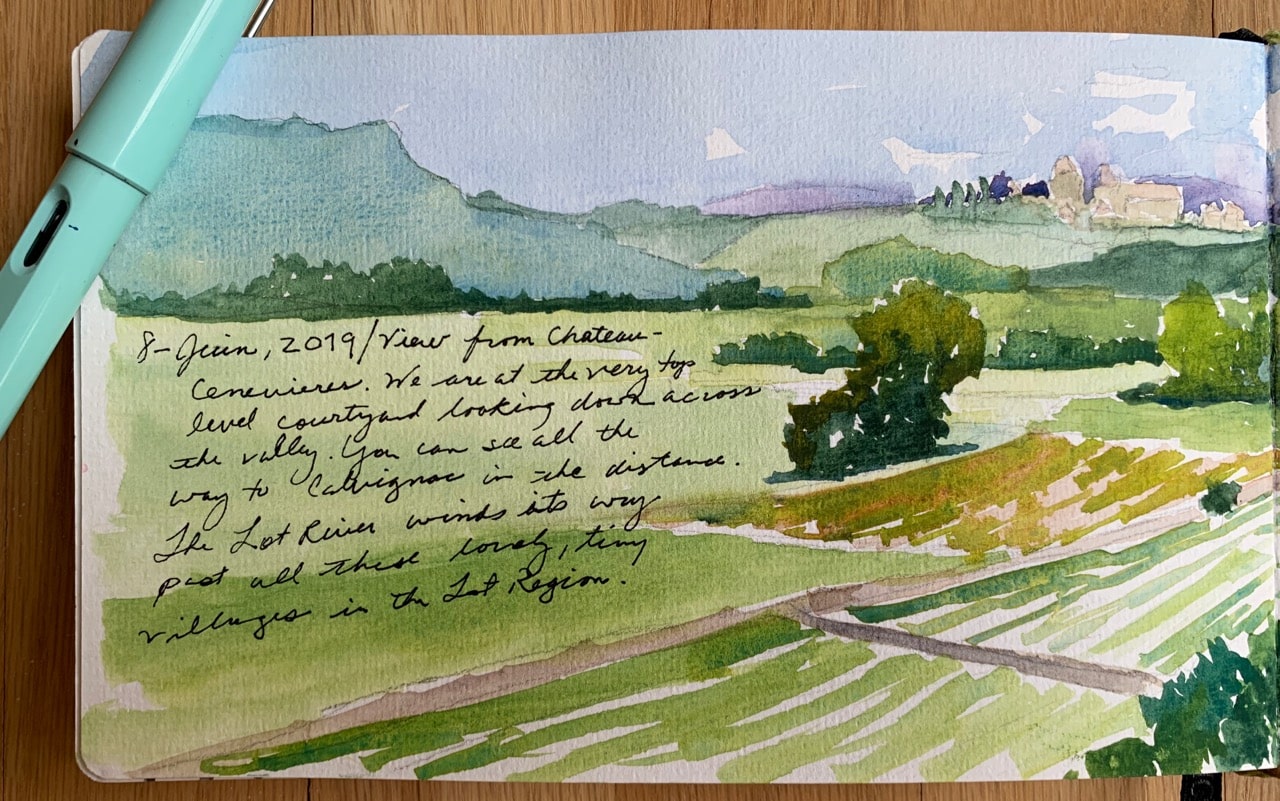 8-Juin, 2019/View from Chateau-
Cenevieres. We are at the very top
level courtyard looking down across
the valley. You can see all the
way to Calvignac in the distance.
The Lot River winds its way
past all these lovely, tiny
villages in the Lot Region.